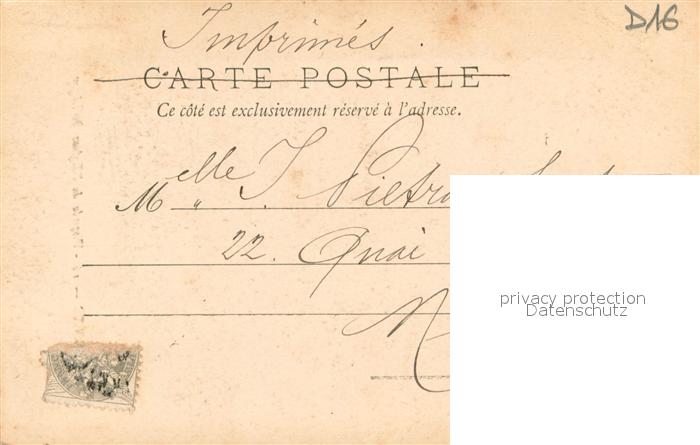 D16
Imprimés.
CARTE POSTALE
Ce côté est exclusivement réservé à l'adresse.
Melle J.
22. Quai
privacy protection
Datenschutz